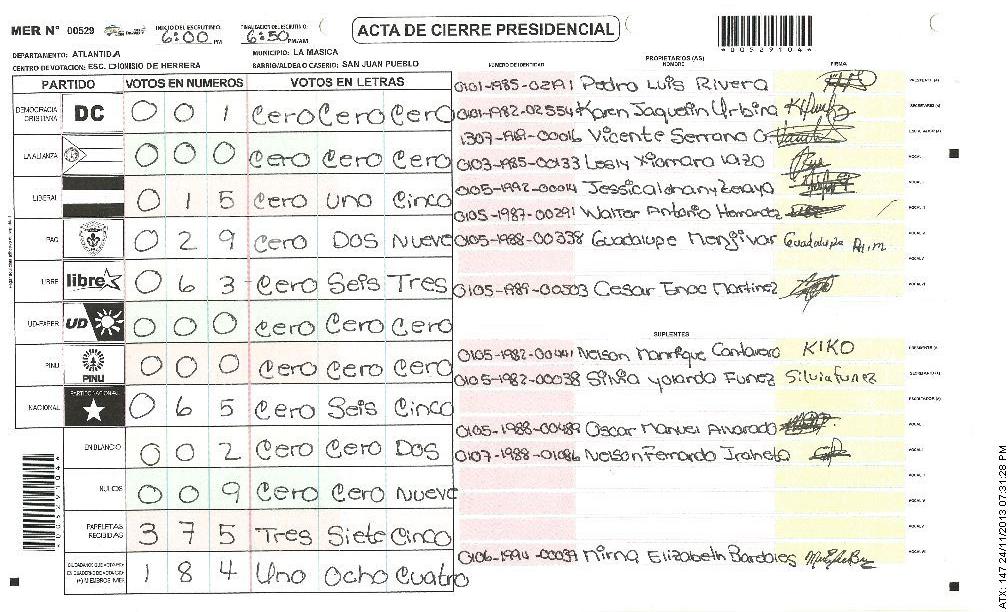 MER Nº 00529
INICIO DEL ESCRUTINIO: 6:00 PM
FINALIZACION DEL ESCRUTINIO: 6:50 PM/AM
ACTA DE CIERRE PRESIDENCIAL
*00529104*
DEPARTAMENTO: ATLANTIDA
MUNICIPIO: LA MASICA
CENTRO DE VOTACION: ESC. DIONISIO DE HERRERA
BARRIO/ALDEA O CASERIO: SAN JUAN PUEBLO
PARTIDO VOTOS EN NUMEROS VOTOS EN LETRAS
DEMOCRACIA CRISTIANA DC 0 0 1 Cero Cero Cero
LA ALIANZA 0 0 0 Cero Cero Cero
LIBERAL 0 1 5 Cero Uno Cinco
PAC 0 2 9 Cero Dos Nueve
LIBRE libre 0 6 3 Cero Seis Tres
UD-FAPER UD 0 0 0 Cero Cero Cero
PINU PINU 0 0 0 Cero Cero Cero
NACIONAL PARTIDO NACIONAL 0 6 5 Cero Seis Cinco
EN BLANCO 0 0 2 Cero Cero Dos
NULOS 0 0 9 Cero Cero Nueve
PAPELETAS RECIBIDAS 3 7 5 Tres Siete Cinco
(+) MIEMBROS MER 1 8 4 Uno Ocho Cuatro
PROPIETARIOS (AS)
NUMERO DE IDENTIDAD NOMBRE FIRMA
0101-1985-02191 Pedro Luis Rivera
0101-1982-02554 Karen Jaquelin Urbina
1307-1969-00016 Vicente Serrano O.
0103-1985-00133 Lesly Xiomara
0105-1992-00014
0105-1987-00291 Walter Antonio
0105-1988-00338 Guadalupe Menjivar Guadalupe
0105-1989-00503 Cesar Enoc Martinez
SUPLENTES
0105-1982-00441 Nelson Manrique KIKO
0105-1982-00038 Silvia Yolanda Funez Silvia Funez
0105-1988-00489 Oscar Manuel Alvarado
0107-1988-01086 Nelson Fernando
0106-1994-00039 Mirna Elizabeth
ATX: 147 24/11/2013 07:31:28 PM